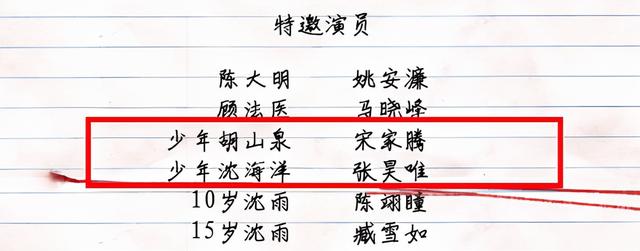 特邀演员
陈大明 姚安濂
顾法医 马晓峰
少年胡山泉 宋家腾
少年沈海洋 张昊唯
10岁沈雨 陈翊曈
15岁沈雨 臧雪如